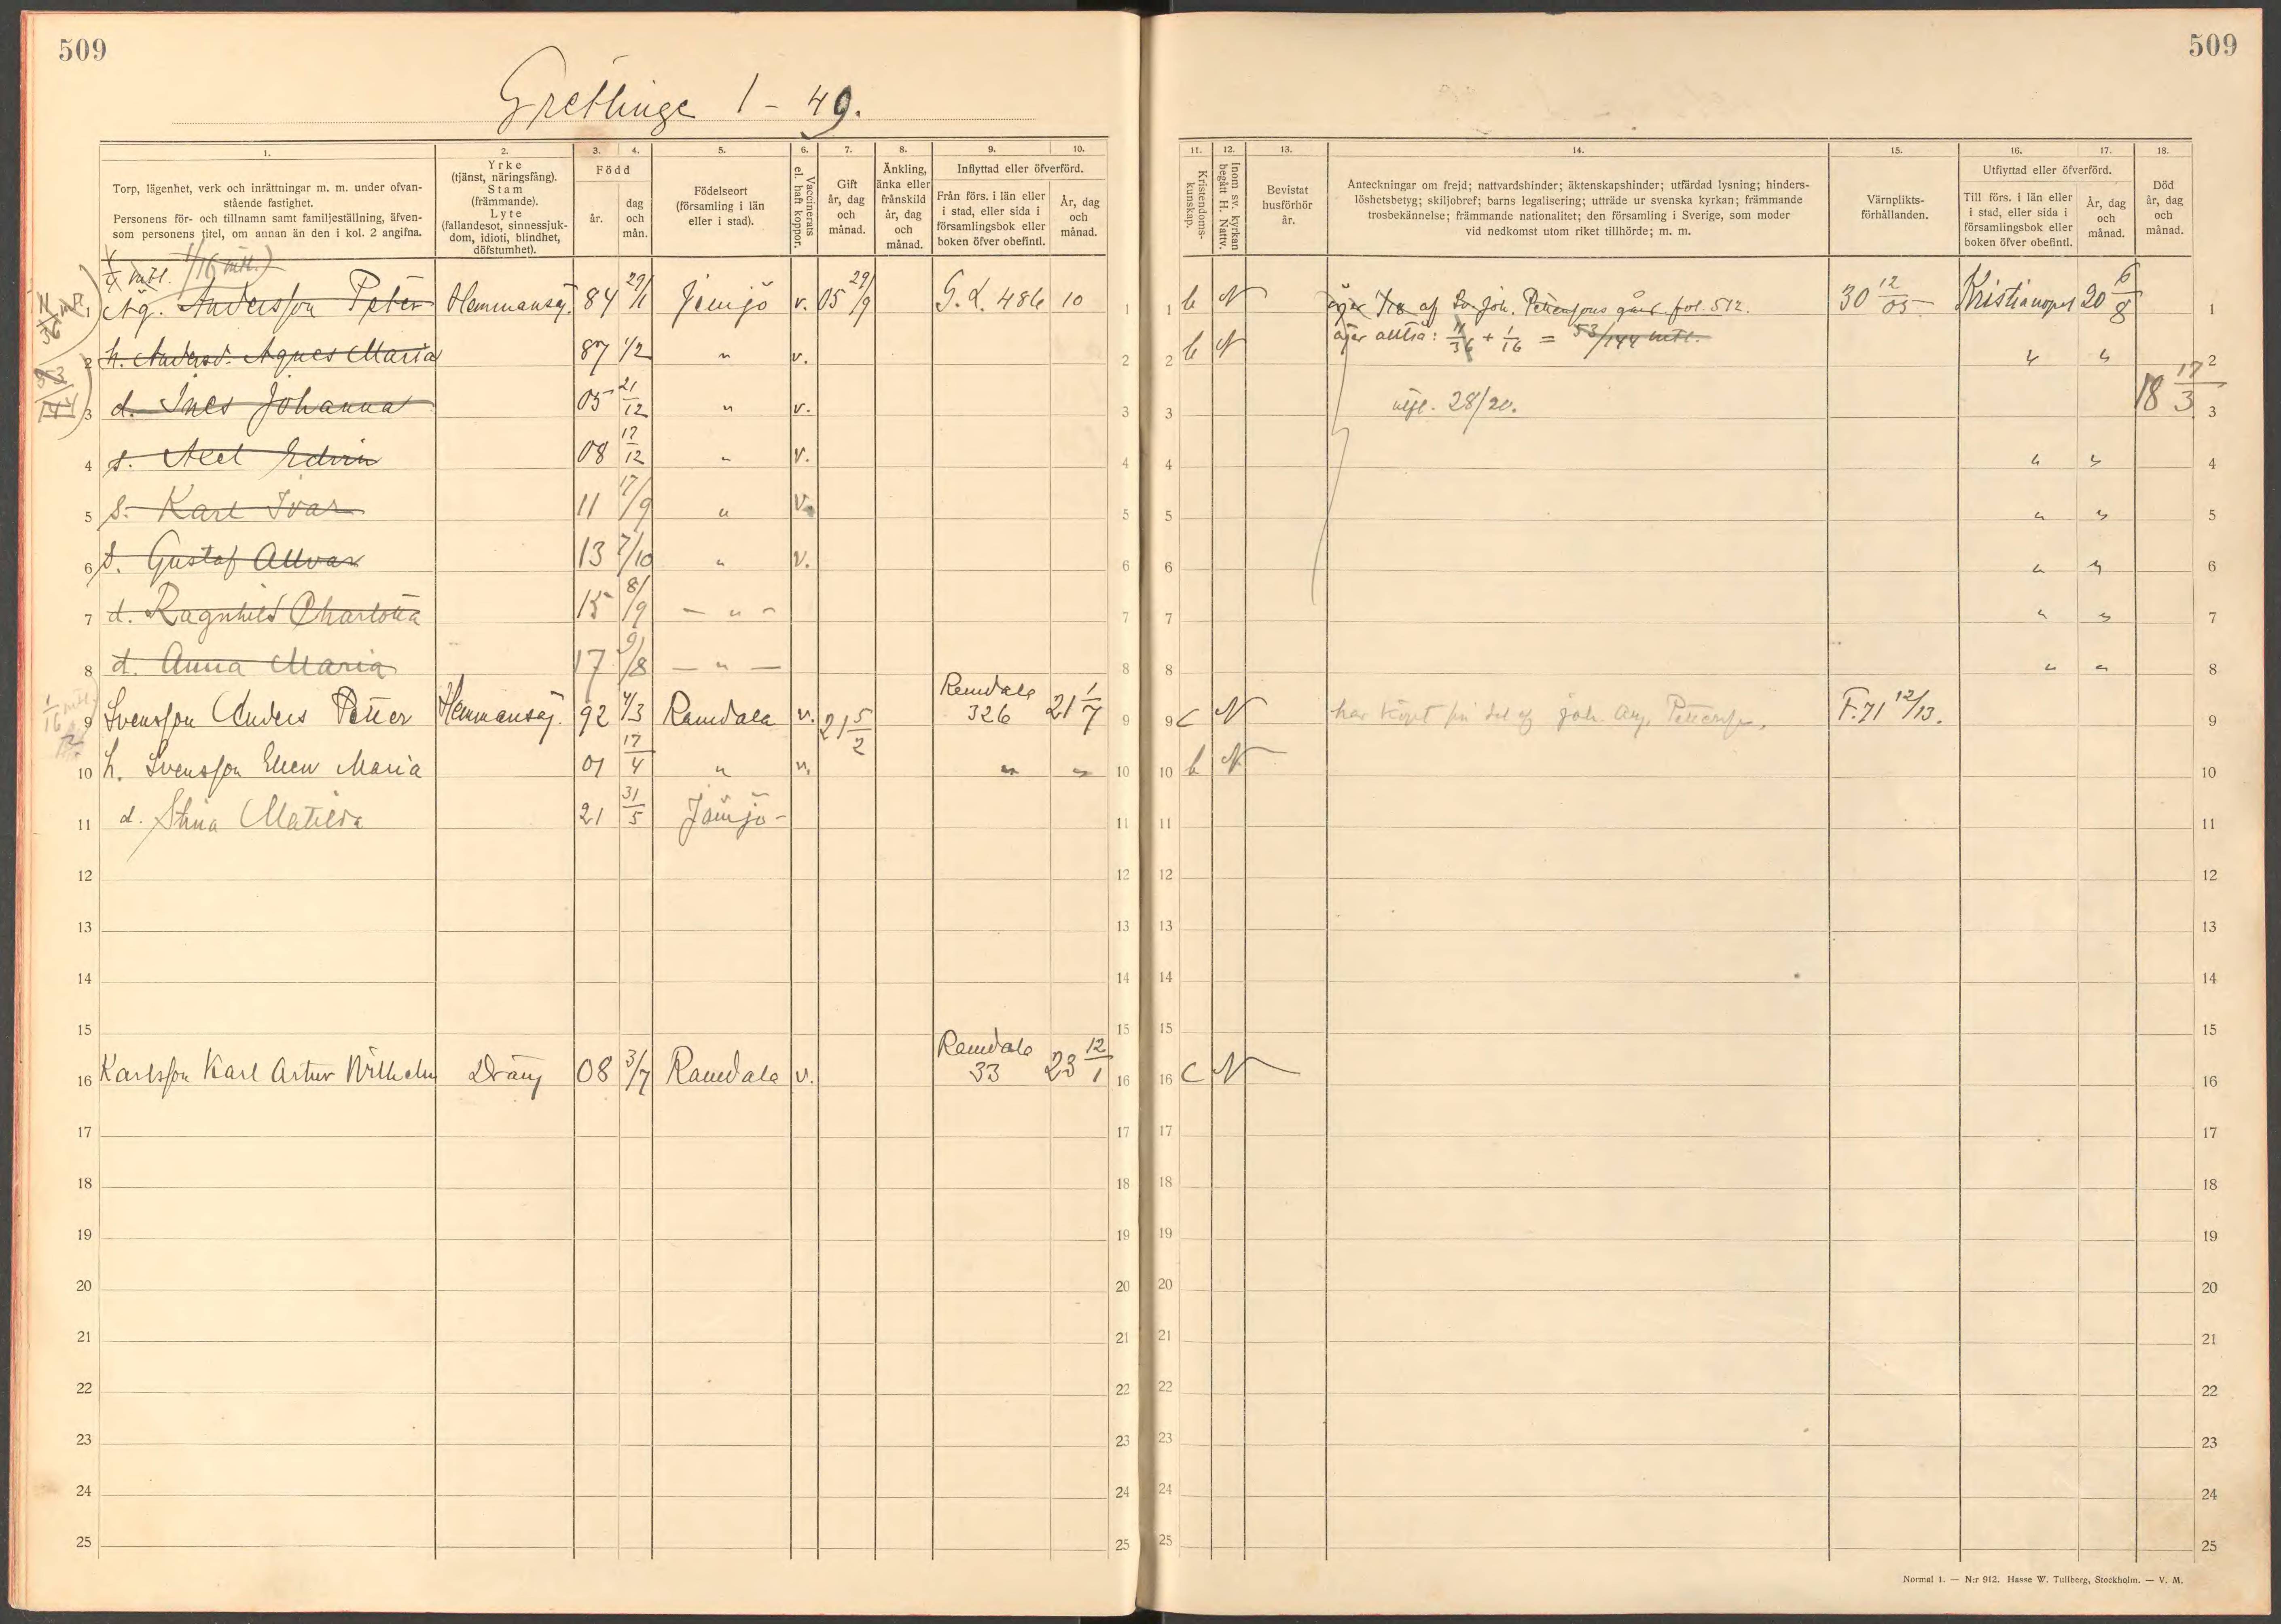 509
509
Grettinge 1 - 49.
1.
2.
3.
4.
5.
6.
7.
8.
9.
10.
Torp, lägenhet, verk och inrättningar m. m. under ofvan-
stående fastighet.
Personens för- och tillnamn samt familjeställning, äfven-
som personens titel, om annan än den i kol. 2 angifna.
Yrke
(tjänst, näringsfång).
Stam
(främmande).
Lyte
(fallandesot, sinnessjuk-
dom, idioti, blindhet,
döfstumhet).
Född
år.
dag
och
mån.
Födelseort
(församling i län
eller i stad).
Vaccinerats
el. haft koppor.
Gift
år, dag
och
månad.
Änkling,
änka eller
frånskild
år, dag
och
månad.
Inflyttad eller öfverförd.
Från förs. i län eller
i stad, eller sida i
församlingsbok eller
boken öfver obefintl.
År, dag
och
månad.
11.
12.
13.
14.
15.
16.
17.
18.
Kristendoms-
kunskap.
Inom sv. kyrkan
begått H. Nattv.
Bevistat
husförhör
år.
Anteckningar om frejd; nattvardshinder; äktenskapshinder; utfärdad lysning; hinders-
löshetsbetyg; skiljobref; barns legalisering; utträde ur svenska kyrkan; främmande
trosbekännelse; främmande nationalitet; den församling i Sverige, som moder
vid nedkomst utom riket tillhörde; m. m.
Värnplikts-
förhållanden.
Utflyttad eller öfverförd.
Till förs. i län eller
i stad, eller sida i
församlingsbok eller
boken öfver obefintl.
År, dag
och
månad.
Död
år, dag
och
månad.
mtl. 1/16 mtl.)
11/36 mtl
1 Äg. Andersson Peter Hemmansäg. 84 29/11 Jemjö v. 05 29/9 G. L. 486 10 1
1 b N äger 1/18 af Sv. Joh. Petterssons gård fol. 512. 30 12/05 Kristianopel 20 6/8 1
2 h. Andersd. Agnes Maria 87 1/2 " v. 2
2 b N äger alltså: 11/36 + 1/16 = 53/144 mtl. " " 2
53/144
3 d. Ines Johanna 05 21/12 " v. 3
3 utfl. 28/20. 18 17/3 3
4 s. Axel Edvin 08 17/12 " v. 4
4 " " 4
5 s. Karl Ivar 11 17/9 " v. 5
5 " " 5
6 s. Gustaf Allvar 13 7/10 " v. 6
6 " " 6
7 d. Ragnhild Charlotta 15 8/9 - " - 7
7 " " 7
8 d. Anna Maria 17 9/8 - " - 8
8 " " 8
1/16 mtl
9 Svensson Anders Petter Hemmansäg. 92 4/3 Ramdala v. 21 5/2 Ramdala 326 21 1/7 9
9 c N har köpt sin del af Joh. Aug. Petterss. F. 71 12/13. 9
10 h. Svensson Ellen Maria 01 17/4 " v. " " 10
10 b N 10
11 d. Stina Matilda 21 31/5 Jämjö - 11
11 11
12 12
12
13 13
13 13
14 14
14 14
15 15
15 15
16 Karlsson Karl Artur Wilhelm Dräng 08 3/7 Ramdala v. Ramdala 33 23 12/1 16
16 c N 16
17 17
17 17
18 18
18 18
19 19
19 19
20 20
20 20
21 21
21 21
22 22
22 22
23 23
23 23
24 24
24 24
25 25
25 25
Normal 1. — N:r 912. Hasse W. Tullberg, Stockholm. — V. M.